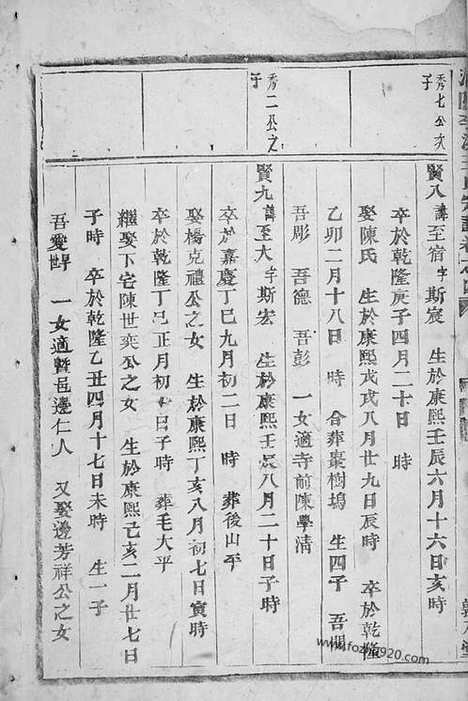 秀七公次子
賢八諱至宿字斯宸 生於康熙壬辰六月十六日亥時
卒於乾隆庚子四月二十日 時
娶陳氏 生於康熙戊戌八月廿九日辰時 卒於乾隆
乙卯二月十八日 時 合葬棗樹塢 生四子 吾
吾彫 吾德 吾彭 一女適寺前陳學清
秀二公之子
賢九諱至大字斯宏 生於康熙壬辰八月二十日子時
卒於嘉慶丁巳九月初二日 時 葬後山平
娶楊克禮公之女 生於康熙丁亥八月初七日寅時
卒於乾隆丁巳正月初 日子時 葬毛大平
繼娶下宅陳世奕公之女 生於康熙己亥二月廿七日
子時 卒於乾隆乙丑四月十七日未時 生一子
吾愛 一女適暨邑邊仁人 又娶邊芳祥公之女
www.fozhu920.com